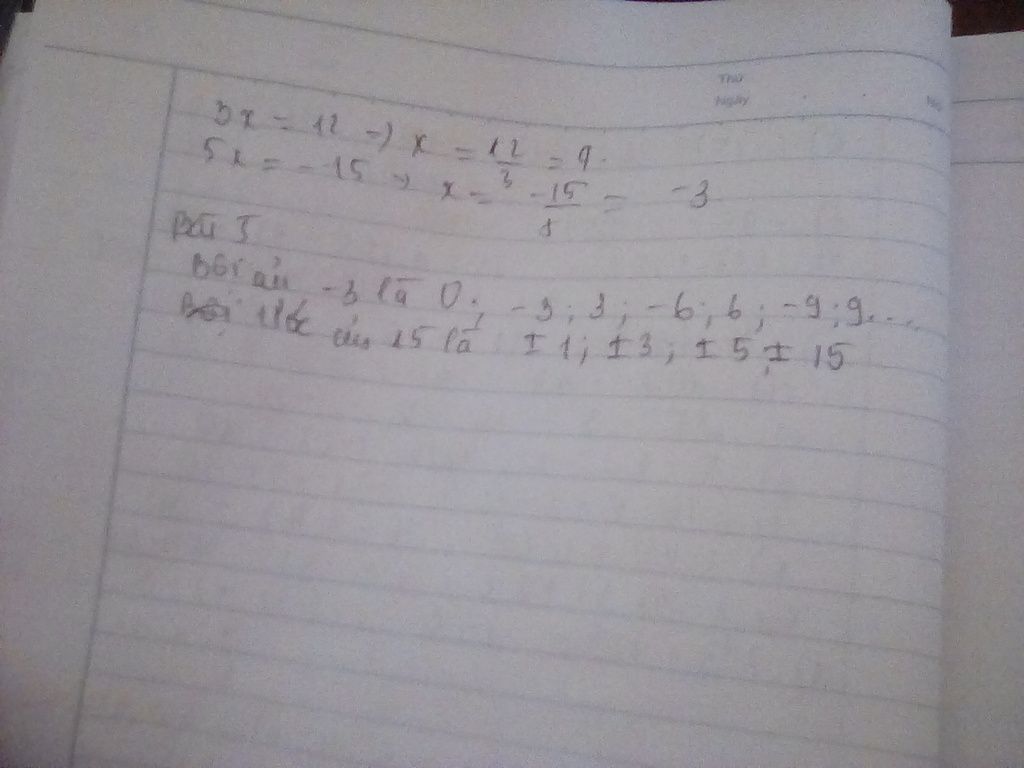 Thứ
Ngày
No
3x = 12 => x = 12/3 = 4.
5x = -15 => x = -15/5 = -3
Bài 5
Bội của -3 là 0; -3; 3; -6; 6; -9; 9...
của 15 là ± 1; ± 3; ± 5; ± 15